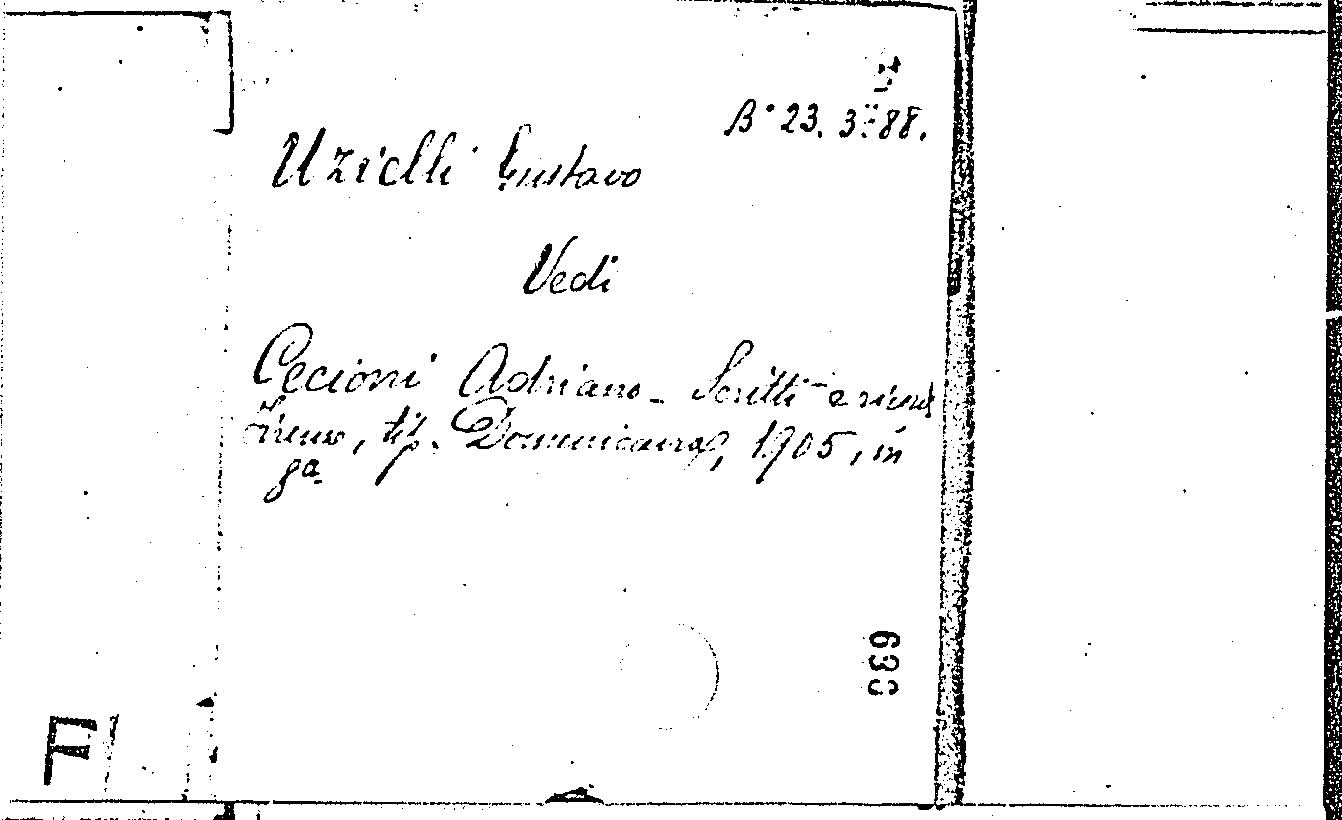 B° 23. 3. 88.
Uzielli Gustavo
Vedi
Cecioni Adriano - Scritti e ricordi
Firenze, tip. Domenicana, 1905, in
8a
F